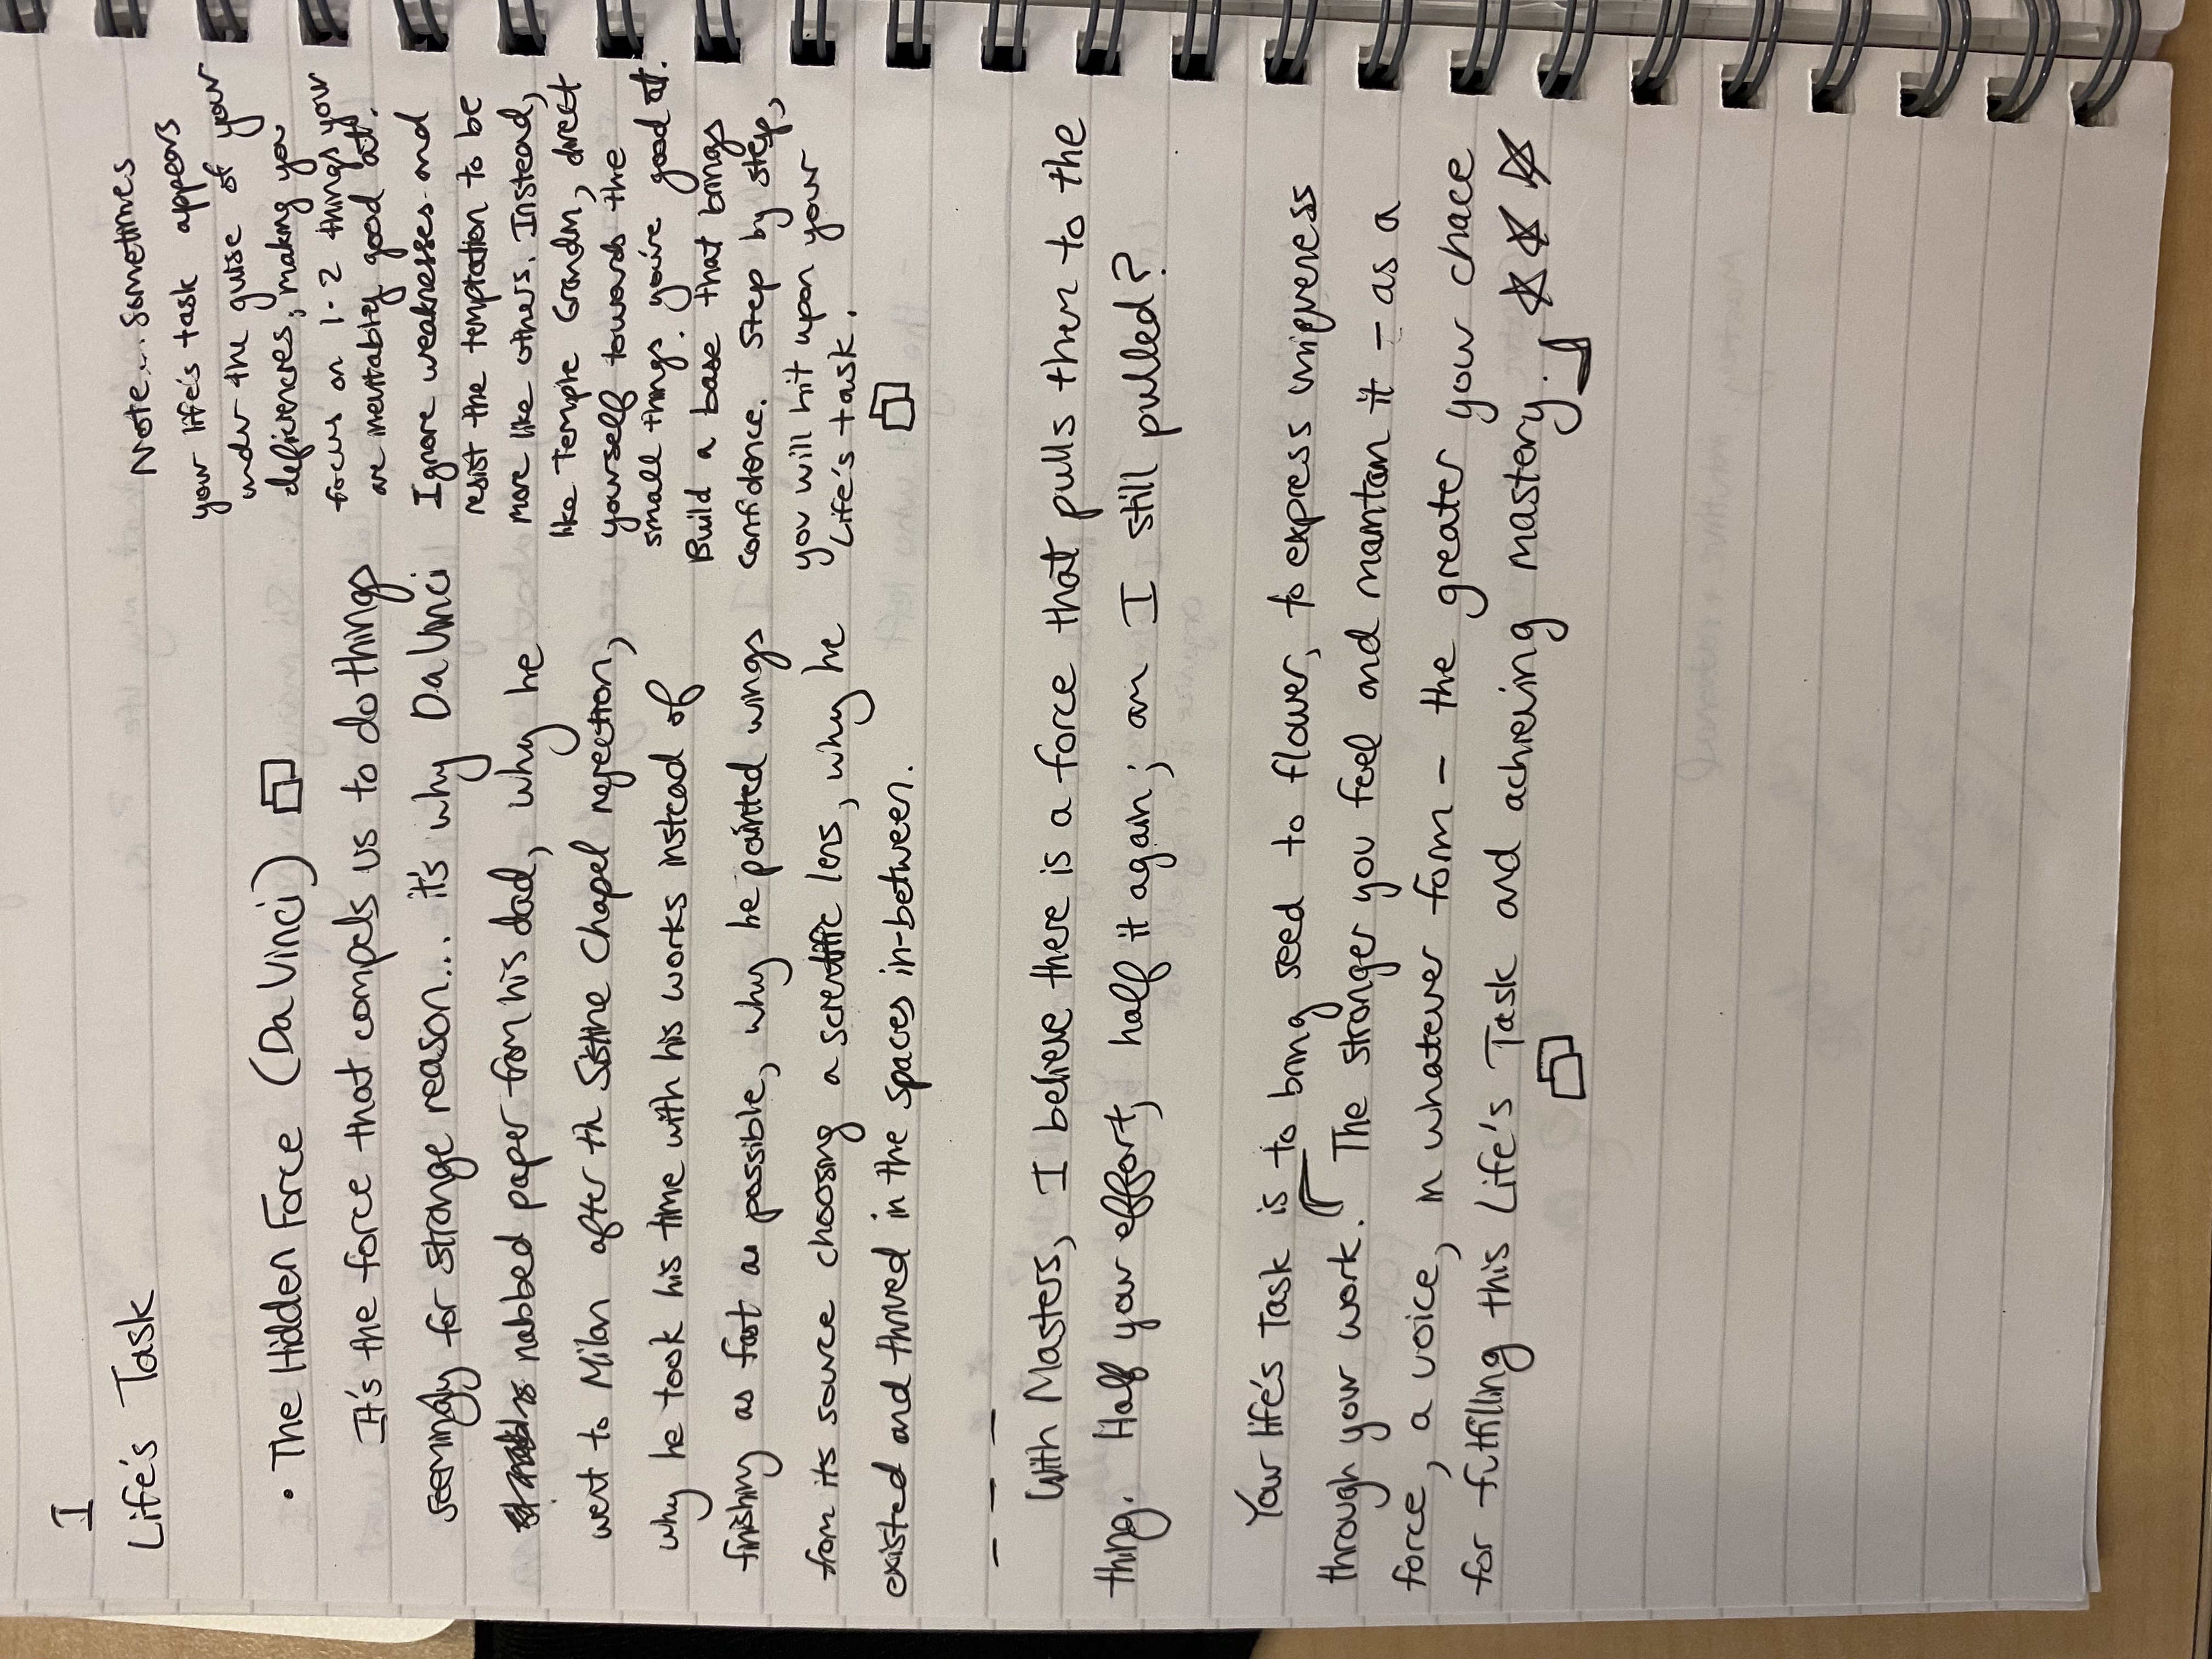 I
Life's Task
• The Hidden Force (Da Vinci)
It's the force that compels us to do things
seemingly for strange reason... it's why Da Vinci
nabbed paper from his dad, why he
went to Milan after th Sistine Chapel rejection,
why he took his time with his works instead of
finishing as fast as possible, why he painted wings
from its source choosing a scientific lens, why he
existed and thrived in the spaces in-between.
Note... Sometimes
your life's task appears
under the guise of your
deficiencies, making you
focus on 1-2 things your
are inevitably good at.
Ignore weaknesses and
resist the temptation to be
more like others. Instead,
like Temple Grandin, direct
yourself towards the
small things you're good at.
Build a base that brings
confidence. Step by step,
you will hit upon your
Life's task.
– – –
With Masters, I believe there is a force that pulls them to the
thing. Half your effort, half it again; am I still pulled?
Your life's Task is to bring seed to flower, to express uniqueness
through your work. The stronger you feel and maintain it – as a
force, a voice, in whatever form – the greater your chace
for fulfilling this Life's Task and achieving mastery.